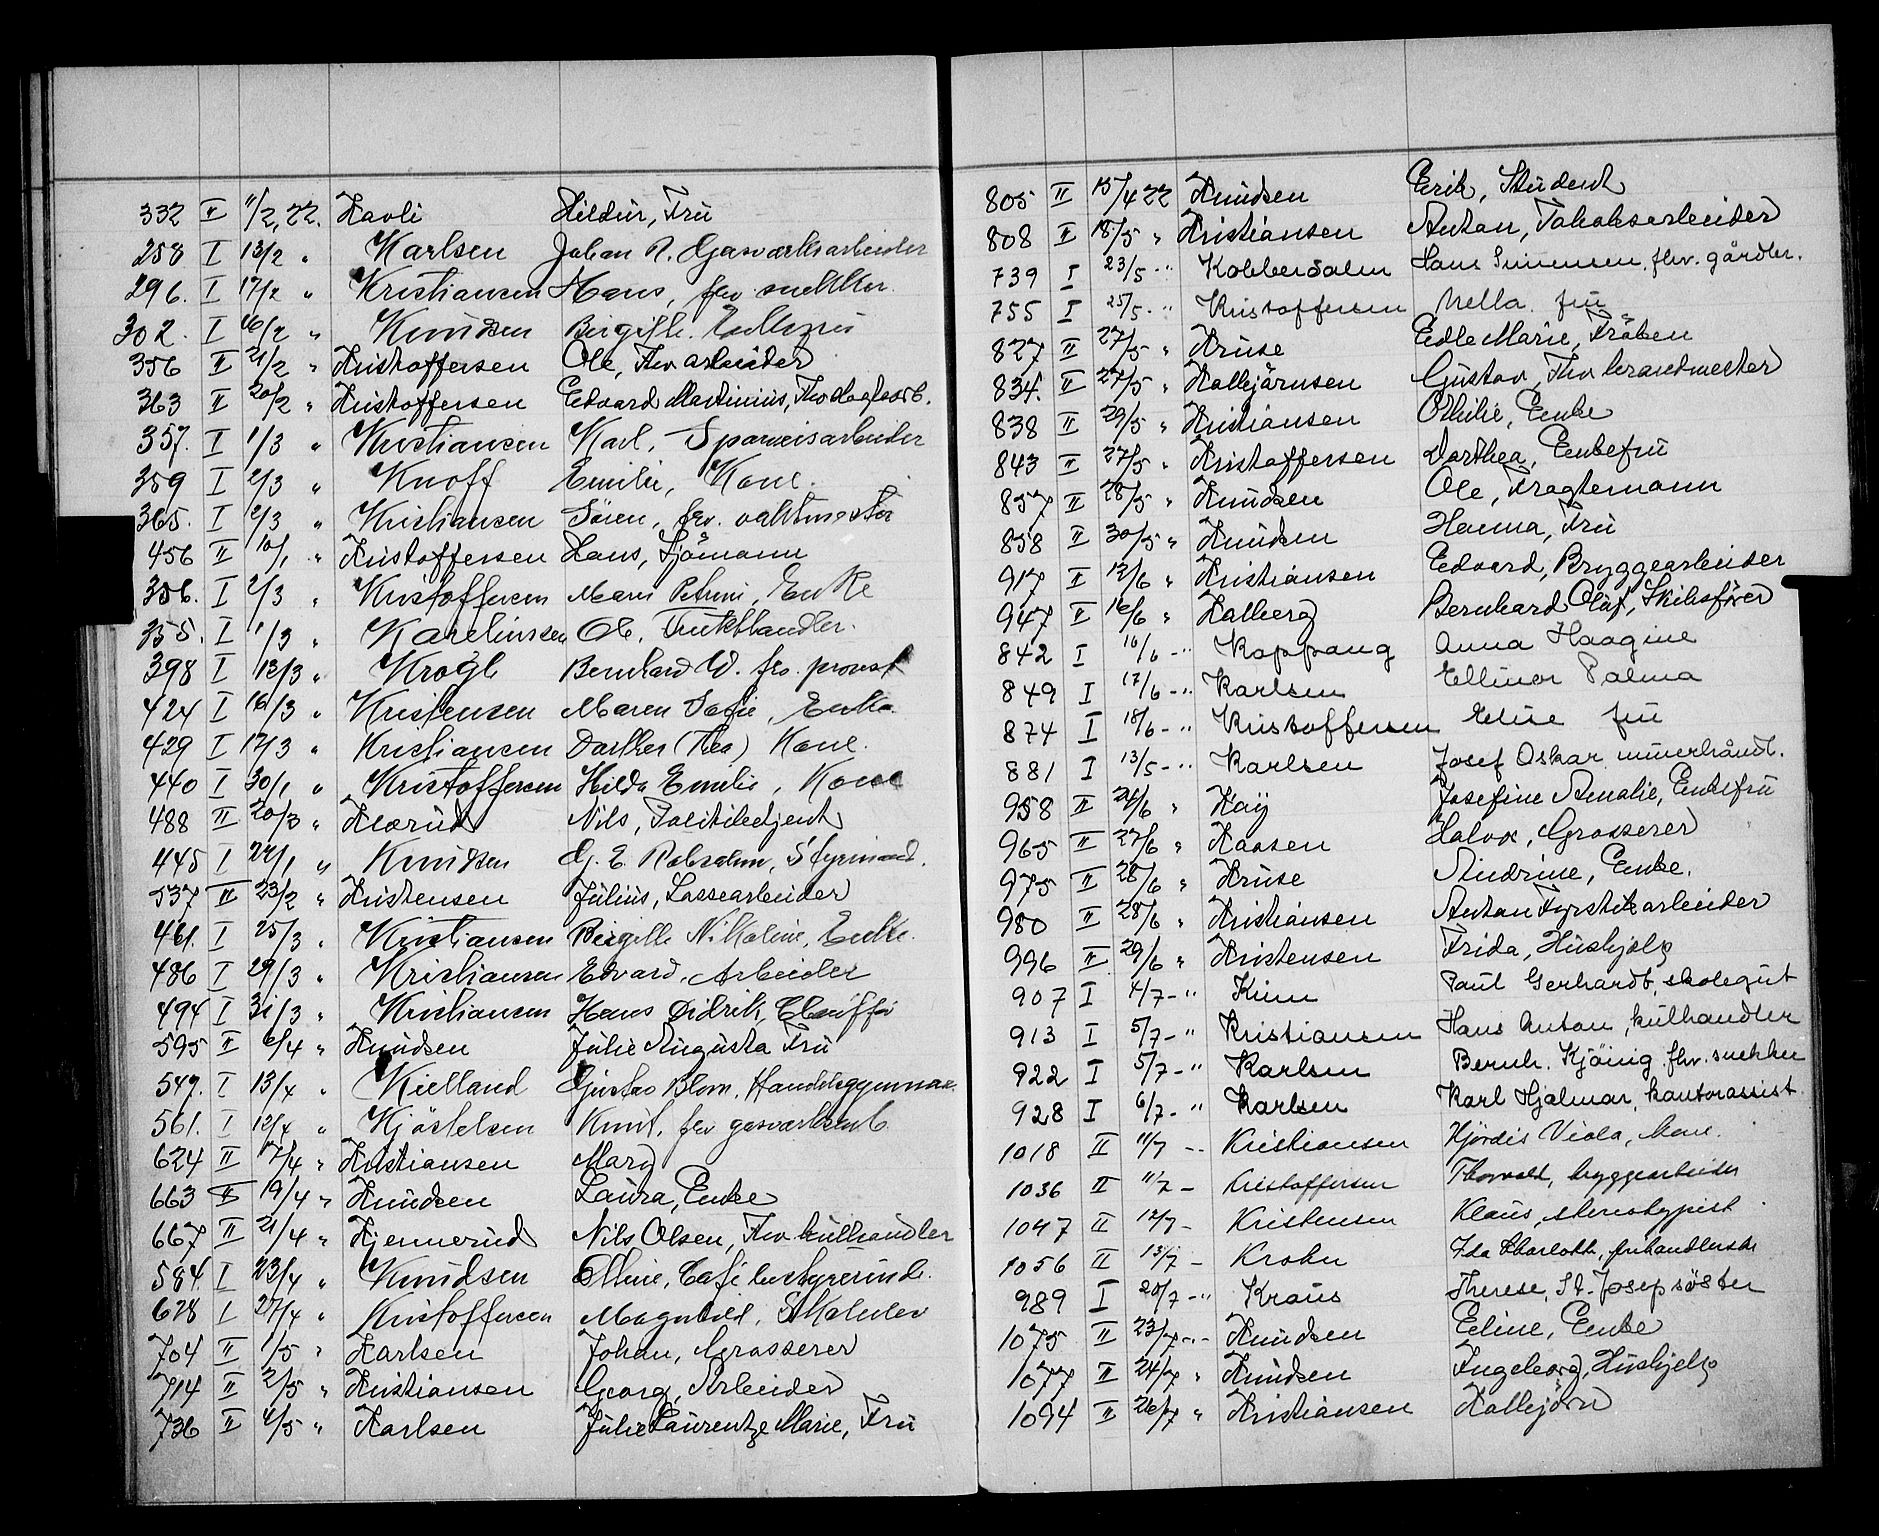 332 II 11/2 22. Kavli Hildur, Fru
258 I 13/2 " Karlsen Johan A. Gasværksarbeider
296. I 17/2 " Kristiansen Hans, fhv. snekker
302. I 16/2 " Knudsen Birgitte. Enkefru
356 II 21/2 " Kristoffersen Ole, Fhv arbeider
363 II 20/2 " Kristoffersen Edvard Martinius, Fhv
357. I 1/3 " Kristiansen Karl, Sporveisarbeider
359 I 2/3 " Knoff Emilie, Kone.
365. I 2/3 " Kristiansen Sören, fhv. vaktmester
456 II 10/1 " Kristoffersen Hans, Sjömann
356. I 2/3 " Kristoffersen Maren Petrine, Enke
355. I 1/3 " Karelinssen Ole, Frukthandler.
398 I 12/3 " Krogh Bernhard W. fhv. provst
424 I 16/3 " Kristensen Maren Sofie, Enke.
429 I 17/3 " Kristiansen Dorthea (Thea) Kone.
440 I 30/1 " Kristoffersen Hilda Emilie, Kone
488 II 20/3 " Klorud Nils, Politibetjent
445 I 24/1 " Knudsen G. E. Robsahm, Styrmand.
537 II 23/2 " Kristensen Julius, Lossearbeider
461. I 25/3 " Kristiansen Birgitte Nikoline, Enke.
486 I 29/3 " Kristiansen Edvard, Arbeider
494 I 31/3 " Kristiansen Hans Didrik, Chauffør
595 II 6/4 " Knudsen Julie Augusta Fru
547. I 13/4 " Kielland Gustav Blom, Handelsgymnas.
561. I 12/4 " Kjöstelsen Knut, fhv gasværksarb.
624 II 17/4 " Kristiansen Mary
663 II 19/4 " Knudsen Laura, Enke
667 II 21/4 " Kjennerud Nils Olsen, Fhv kulhandler
584. I 23/4 " Knudsen Olline, Café bestyrerinde.
628 I 27/4 " Kristoffersen Magnhild, Skoleelev
704 II 1/5 " Karlsen Johan, Grosserer
714 II 2/5 " Kristiansen Georg, Arbeider
736 II 4/5 " Karlsen Julie Laurentze Marie, Fru
805 II 15/4 22 Knudsen Erik, Student
808 II 18/5 " Kristiansen Anton, Tobaksarbeider
739 I 23/5 - " Kobberdalm Hans Simensen, fhv. gårdbr.
755 I 25/5 - " Kristoffersen Nella fru
827 II 27/5 " Kruse Edle Marie, Fröken
834. II 27/5 " Kallbjörnsen Gustav, Fhv brandmester
838 II 29/5 " Kristiansen Othilie, Enke
843 II 27/5 " Kristoffersen Dorthea, Enkefru
857 II 28/5 " Knudsen Ole, Fragtemann
858 II 30/5 " Knudsen Hanna, Fru
917 II 12/6 " Kristiansen Edvard, Bryggearbeider
947 II 16/6 " Kolberg Bernhard Olaf, Skibsfører
842 I 16/6 - " Koppang Anna Haagine
849 I 17/6 - " Karlsen Ellinor Palma
874 I 18/6 - " Kristoffersen Elise fru
881 I 13/5 - " Karlsen Josef Oskar murerhåndl.
958 II 24/6 " Kay Josefine Amalie, Enkefru
965 II 27/6 " Kaasen Halvor, Grosserer
975 II 28/6 " Kruse Andrine, Enke.
980 II 28/6 " Kristiansen Anton Fyrstikarbeider
996 II 29/6 " Kristensen Frida, Hushjelp
907 I 4/7 - " Kum Paul Gerhardt, skolegut
913 I 5/7 - " Kristiansen Hans Anton, kulhandler
922 I 5/7 - " Karlsen Bernh. Kjönig fhv. snekker
928 I 6/7 - " Karlsen Karl Hjalmar, kontorassist.
1018 II 11/7 - - Kristiansen Hjördis Viola,
1036 II 11/7 - Kristoffersen Thorvald, bryggearbeider
1047 II 12/7 - Kristensen Klaus, stereotypist
1056 II 13/7 - Krohn Ida Charlotte, forhandlerske
989 I 20/7 - " Kraus Therese, St. Josepsöster
1075 II 23/7 - - Knudsen Eline, Enke
1077 II 24/7 " Knudsen Ingeborg, Hushjelp
1094 II 26/7 " Kristiansen Kallbjörn